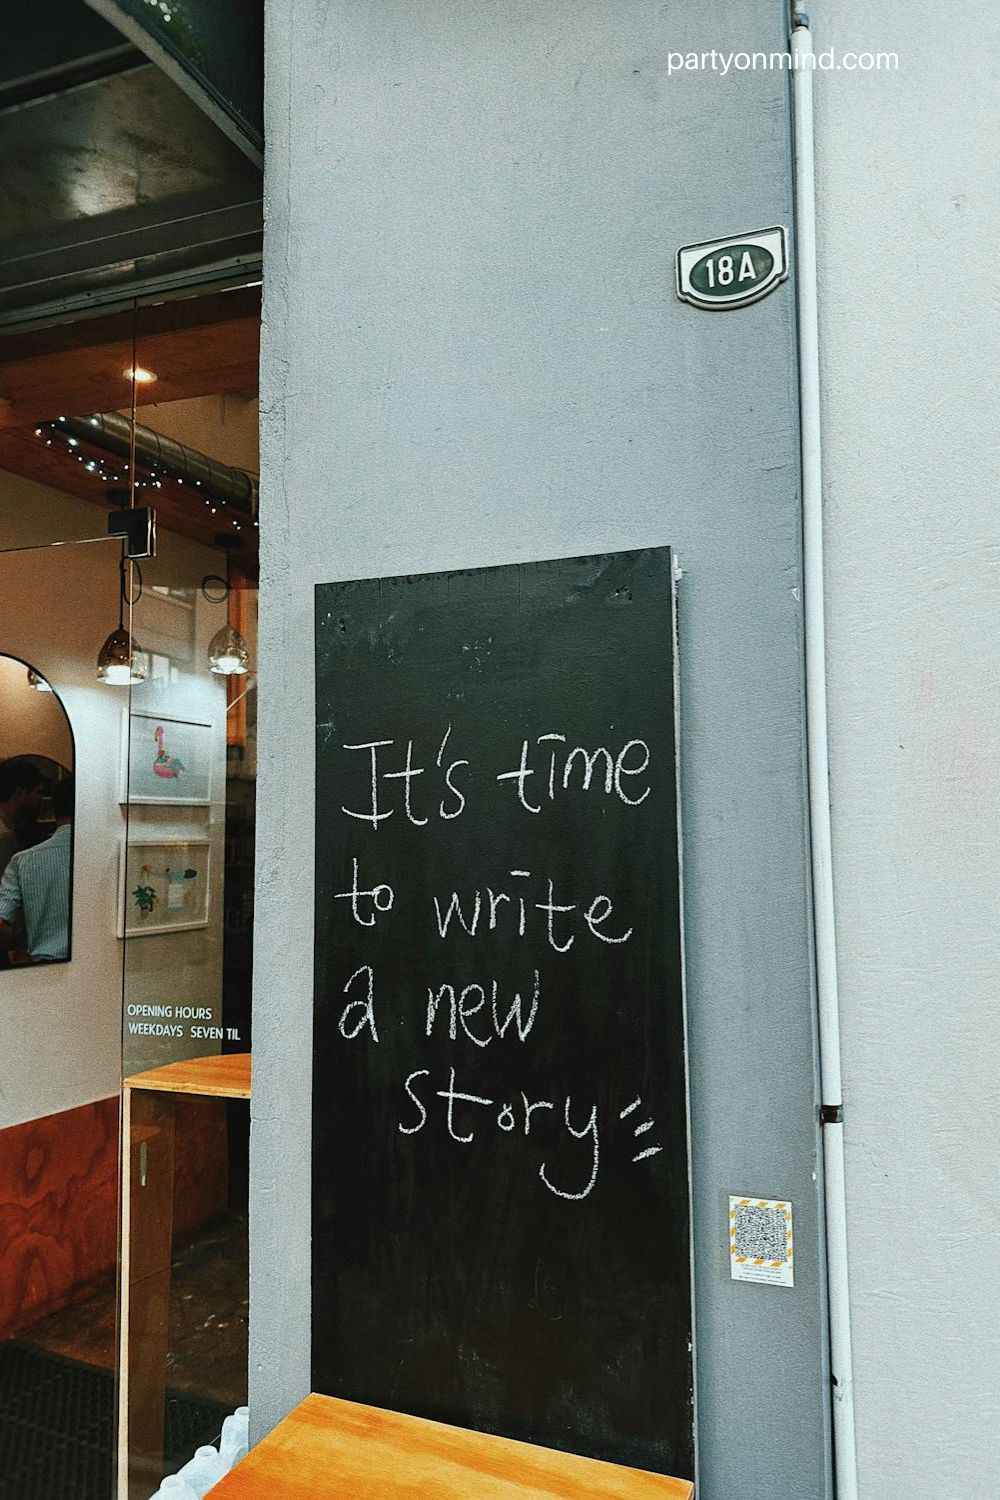 partyonmind.com
18A
It's time
to write
a new
story
OPENING HOURS
WEEKDAYS SEVEN TIL